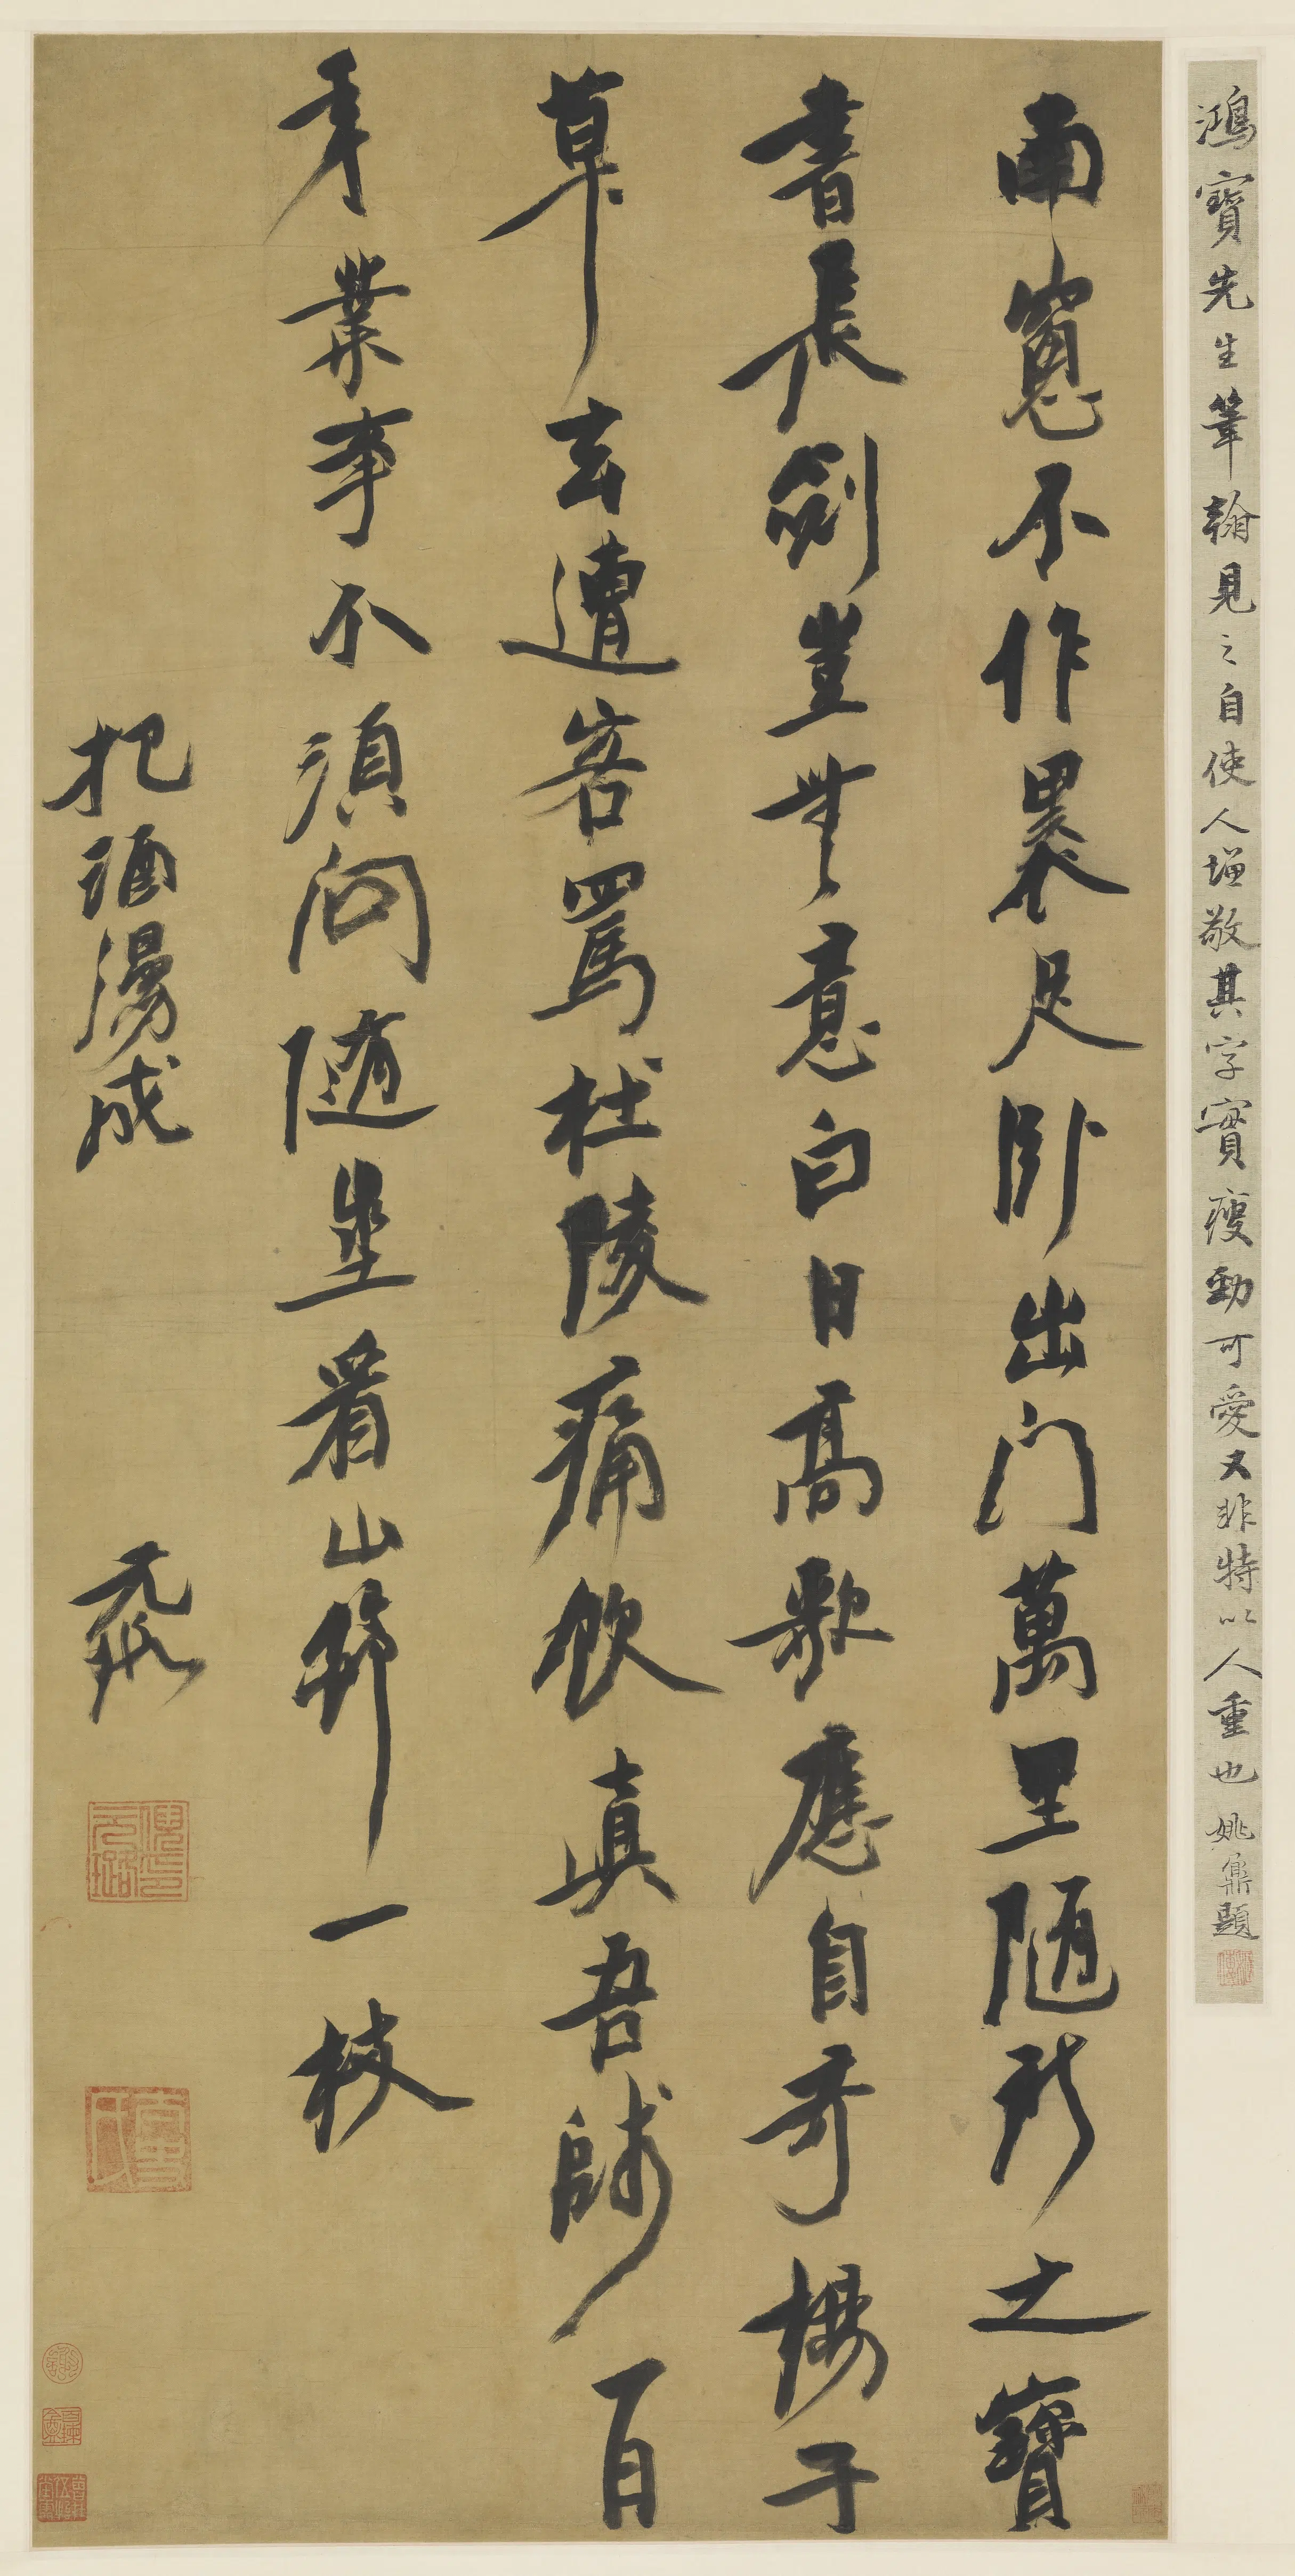 鴻寶先生筆翰見之自使人增敬其字實瘦勁可愛又非特以人重也姚鼐題
南窻不作裹足卧出門萬里随所之寶
書長劍豈無意白日高歌應自奇楊子
草玄遭客罵杜陵痛飲真吾師百
年業事不須問隨坐看山醉一枝
把酒漫成
元璐